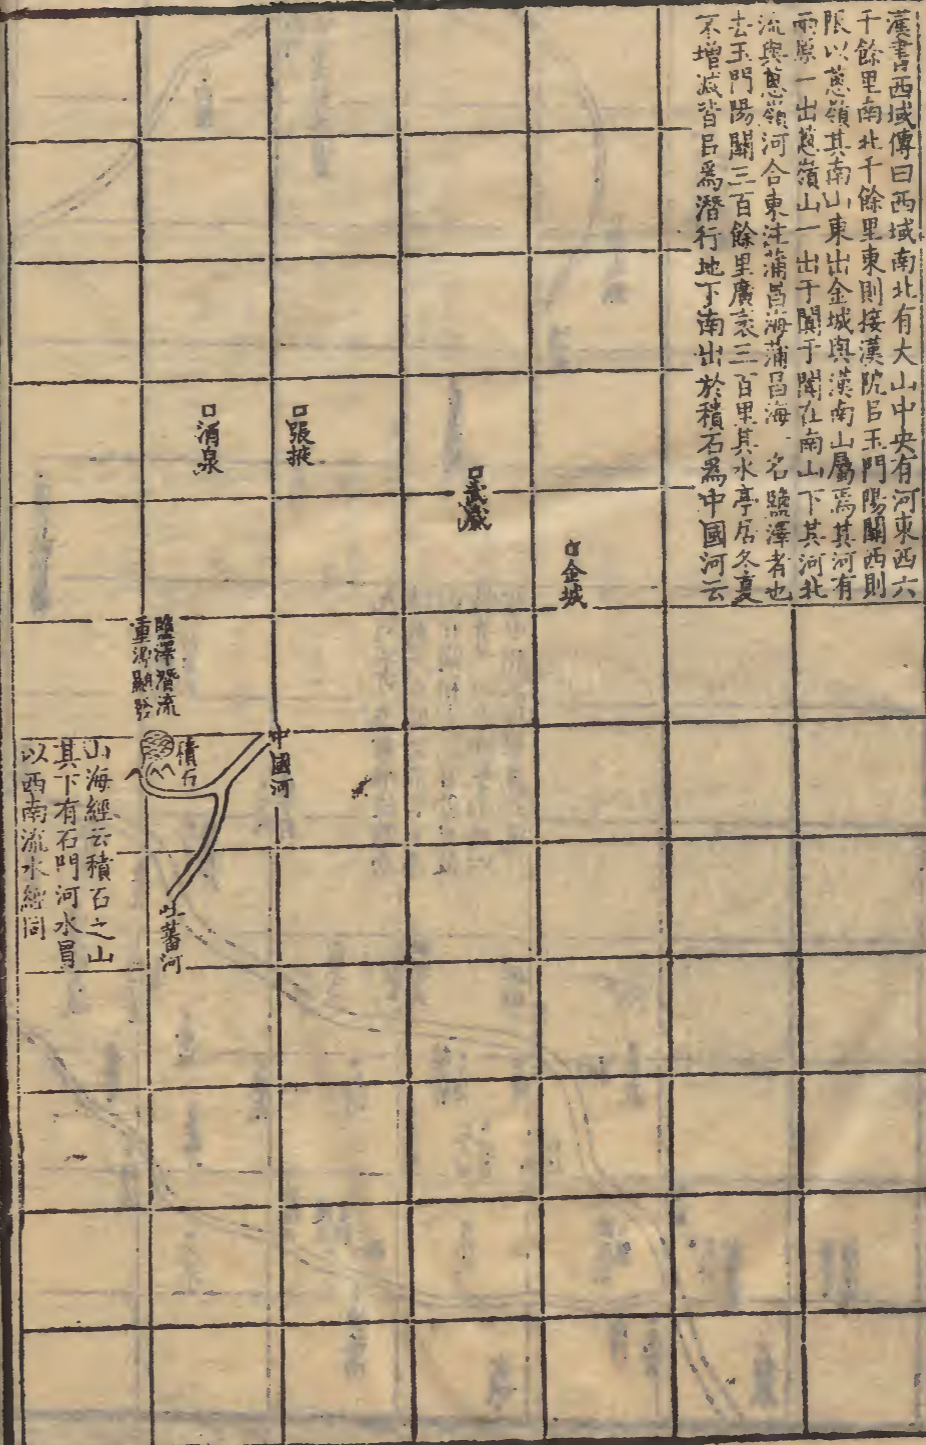 漢書西域傳曰西域南北有大山中央有河東西六
千餘里南北千餘里東則接漢阸㠯玉門陽關西則
限以蔥嶺其南山東出金城與漢南山屬焉其河有
兩原一出蔥嶺山一出于闐于闐在南山下其河北
流與蔥嶺河合東注蒲昌海蒲昌海一名鹽澤者也
去玉門陽關三百餘里廣袤三百里其水亭居冬夏
不增減皆㠯爲潛行地下南出於積石爲中國河云
金城
武威
張掖
酒泉
鹽澤潛流
重源顯發
中國河
積石
吐蕃河
山海經云積石之山
其下有石門河水冒
以西南流水經同